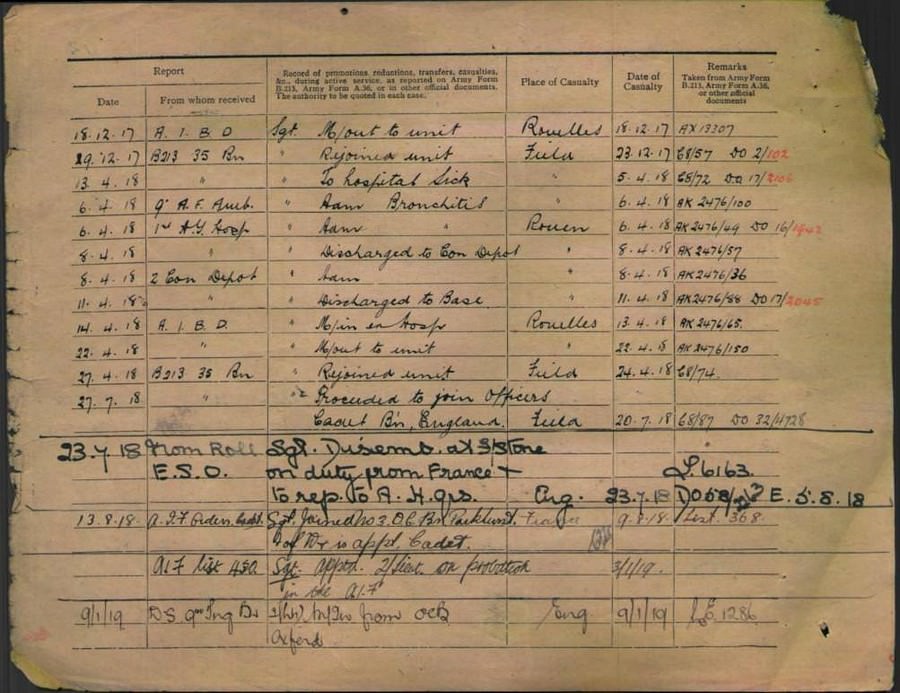 Report
Record of promotions, reductions, transfers, casualties, &c., during active service, as reported on Army Form B.213, Army Form A.36, or in other official documents. The authority to be quoted in each case.
Place of Casualty
Date of Casualty
Remarks
Taken from Army Form B.213, Army Form A.36, or other official documents
Date From whom received
18.12.17 A.I.B.D Sgt. M/out to unit Rouelles 18.12.17 AX13307
29.12.17 B213 35 Bn " Rejoined unit Field 23.12.17 C8/57 DO 2/102
13.4.18 " " To hospital Sick " 5.4.18 C8/72 DO 17/2106
6.4.18 9 A.F. Amb. " Adm Bronchitis 6.4.18 AK 2476/100
6.4.18 1st A.G Hosp " Adm " Rouen 6.4.18 AK 2476/49 DO 16/
8.4.18 " " Discharged to Con Depot " 8.4.18 AK 2476/57
8.4.18 2 Con Depot " Adm " 8.4.18 AK 2476/36
11.4.18 " " Discharged to Base " 11.4.18 AK 2476/88 DO 17/2045
14.4.18 A.I.B.D. " M/in ex Hosp Rouelles 13.4.18 AK 2476/65.
22.4.18 " " M/out to unit " 22.4.18 AK 2476/150
27.4.18 B213 35 Bn " Rejoined unit Field 24.4.18 C8/74
27.7.18 " " Proceeded to join Officers
Cadet B'n, England. Field 20.7.18 C8/87 DO 32/4728
23.7.18 From Roll Sgt. Disemb. at S/Stone
E.S.O. on duty from France + L.6163.
to rep. to A.H.qrs. Eng. 23.7.18 DO 58/ E. 5.8.18
13.8.18. A.I.F Orders Sgt Joined No 3. O.C. Bn Parkhurst. 9.8.18 List. 368.
is appd. Cadet.
AIF list 450 Sgt. apptd. 2/Lieut. on probation 3/1/19.
in the AIF
9/1/19 DS 9th Tng Bn 2/Lt M/In from OCB Eng 9/1/19 E.1286
Oxford